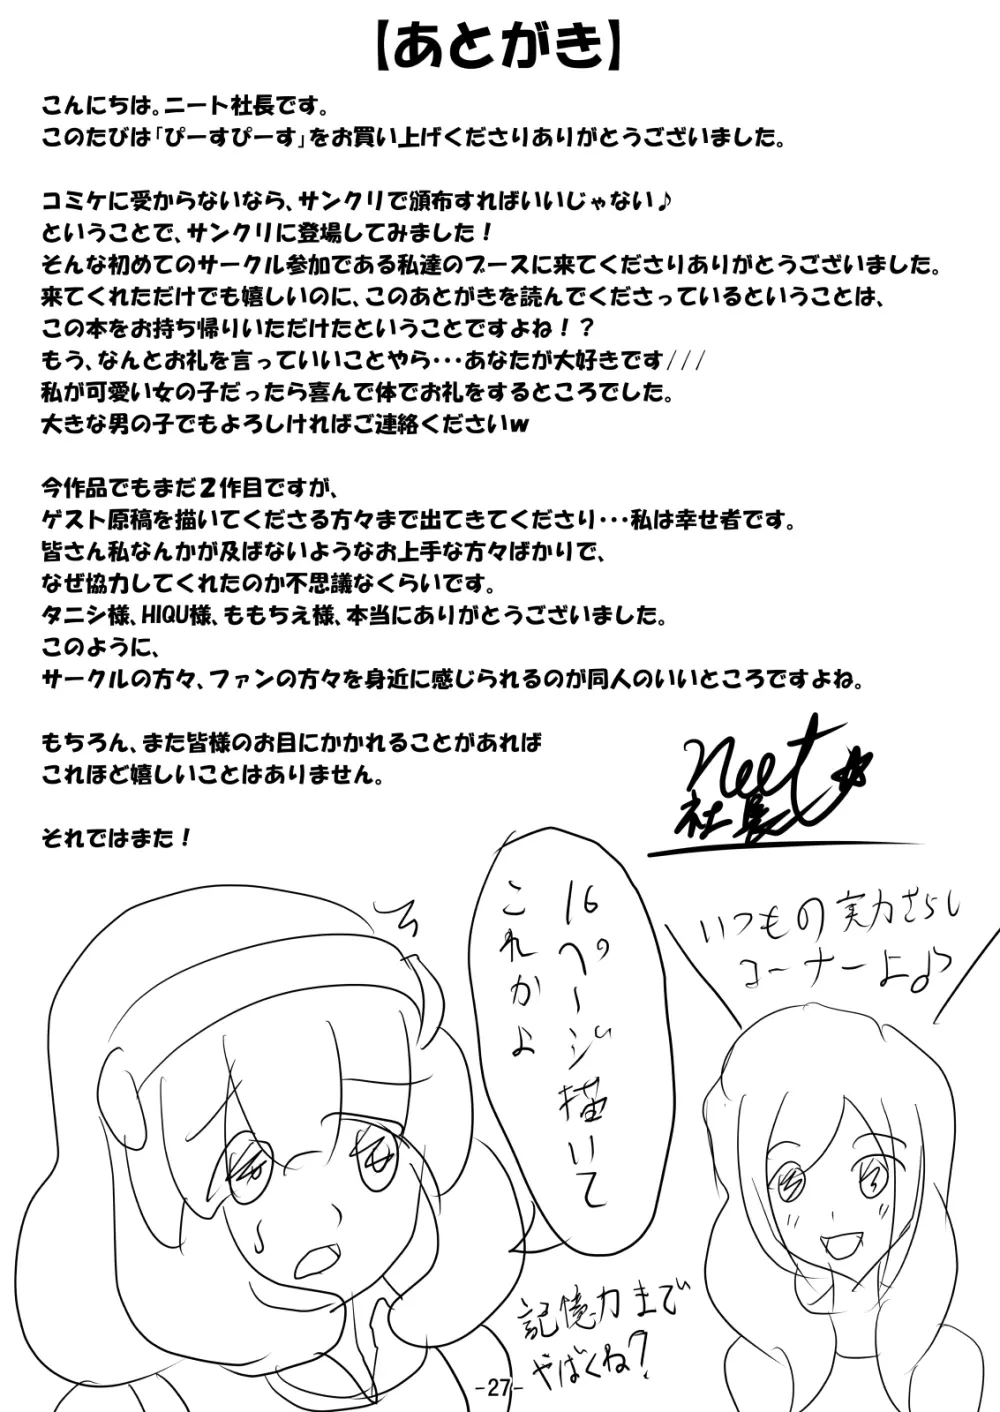 【あとがき】
こんにちは。ニート社長です。
このたびは「ぴーすぴーす」をお買い上げくださりありがとうございました。
コミケに受からないなら、サンクリで頒布すればいいじゃない♪
ということで、サンクリに登場してみました！
そんな初めてのサークル参加である私達のブースに来てくださりありがとうございました。
来てくれただけでも嬉しいのに、このあとがきを読んでくださっているということは、
この本をお持ち帰りいただけたということですよね！？
もう、なんとお礼を言っていいことやら・・・あなたが大好きです///
私が可愛い女の子だったら喜んで体でお礼をするところでした。
大きな男の子でもよろしければご連絡くださいｗ
今作品でもまだ２作目ですが、
ゲスト原稿を描いてくださる方々まで出てきてくださり・・・私は幸せ者です。
皆さん私なんかが及ばないようなお上手な方々ばかりで、
なぜ協力してくれたのか不思議なくらいです。
タニシ様、HIQU様、ももちえ様、本当にありがとうございました。
このように、
サークルの方々、ファンの方々を身近に感じられるのが同人のいいところですよね。
もちろん、また皆様のお目にかかれることがあれば
これほど嬉しいことはありません。
それではまた！
Neet
社長
いつもの実力さらし
コーナーよ♪
16ページ描いて
これかよ
記憶力まで
やばくね？
-27-